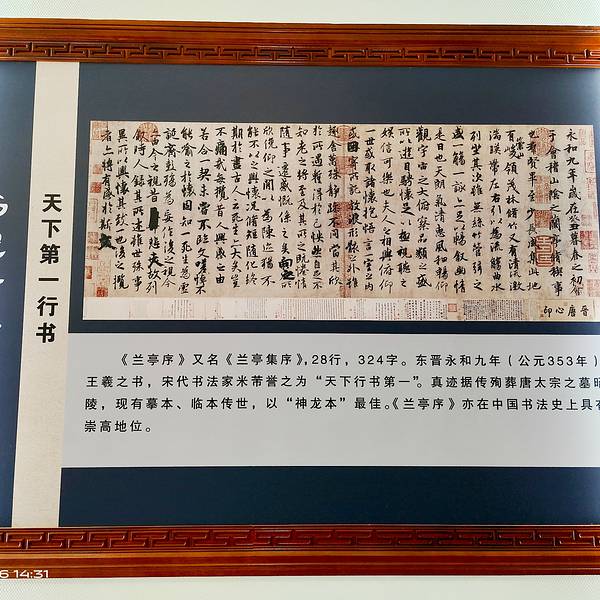 天下第一行书
永和九年歲在癸丑暮春之初會
于會稽山陰之蘭亭脩稧事
也羣賢畢至少長咸集此地
有崇山峻領茂林脩竹又有清流激
湍暎帶左右引以為流觴曲水
列坐其次雖無絲竹管弦之
盛一觴一詠亦足以暢叙幽情
是日也天朗氣清惠風和暢仰
觀宇宙之大俯察品類之盛
所以遊目騁懷足以極視聽之
娛信可樂也夫人之相與俯仰
一世或取諸懷抱悟言一室之內
或因寄所託放浪形骸之外雖
趣舍萬殊靜躁不同當其欣
於所遇蹔得於己怏然自足不
知老之將至及其所之既惓情
隨事遷感慨係之矣向之所
欣俛仰之閒以為陳迹猶不
能不以之興懷況脩短隨化終
期於盡古人云死生亦大矣豈
不痛哉每攬昔人興感之由
若合一契未嘗不臨文嗟悼不
能喻之於懷固知一死生為虛
誕齊彭殤為妄作後之視今
亦由今之視昔悲夫故列
敘時人錄其所述雖世殊事
異所以興懷其致一也後之攬
者亦將有感於斯文
晉唐心印
《兰亭序》又名《兰亭集序》,28行，324字。东晋永和九年（公元353年）
王羲之书，宋代书法家米芾誉之为“天下行书第一”。真迹据传殉葬唐太宗之墓昭
陵，现有摹本、临本传世，以“神龙本”最佳。《兰亭序》亦在中国书法史上具有
崇高地位。
6 14:31